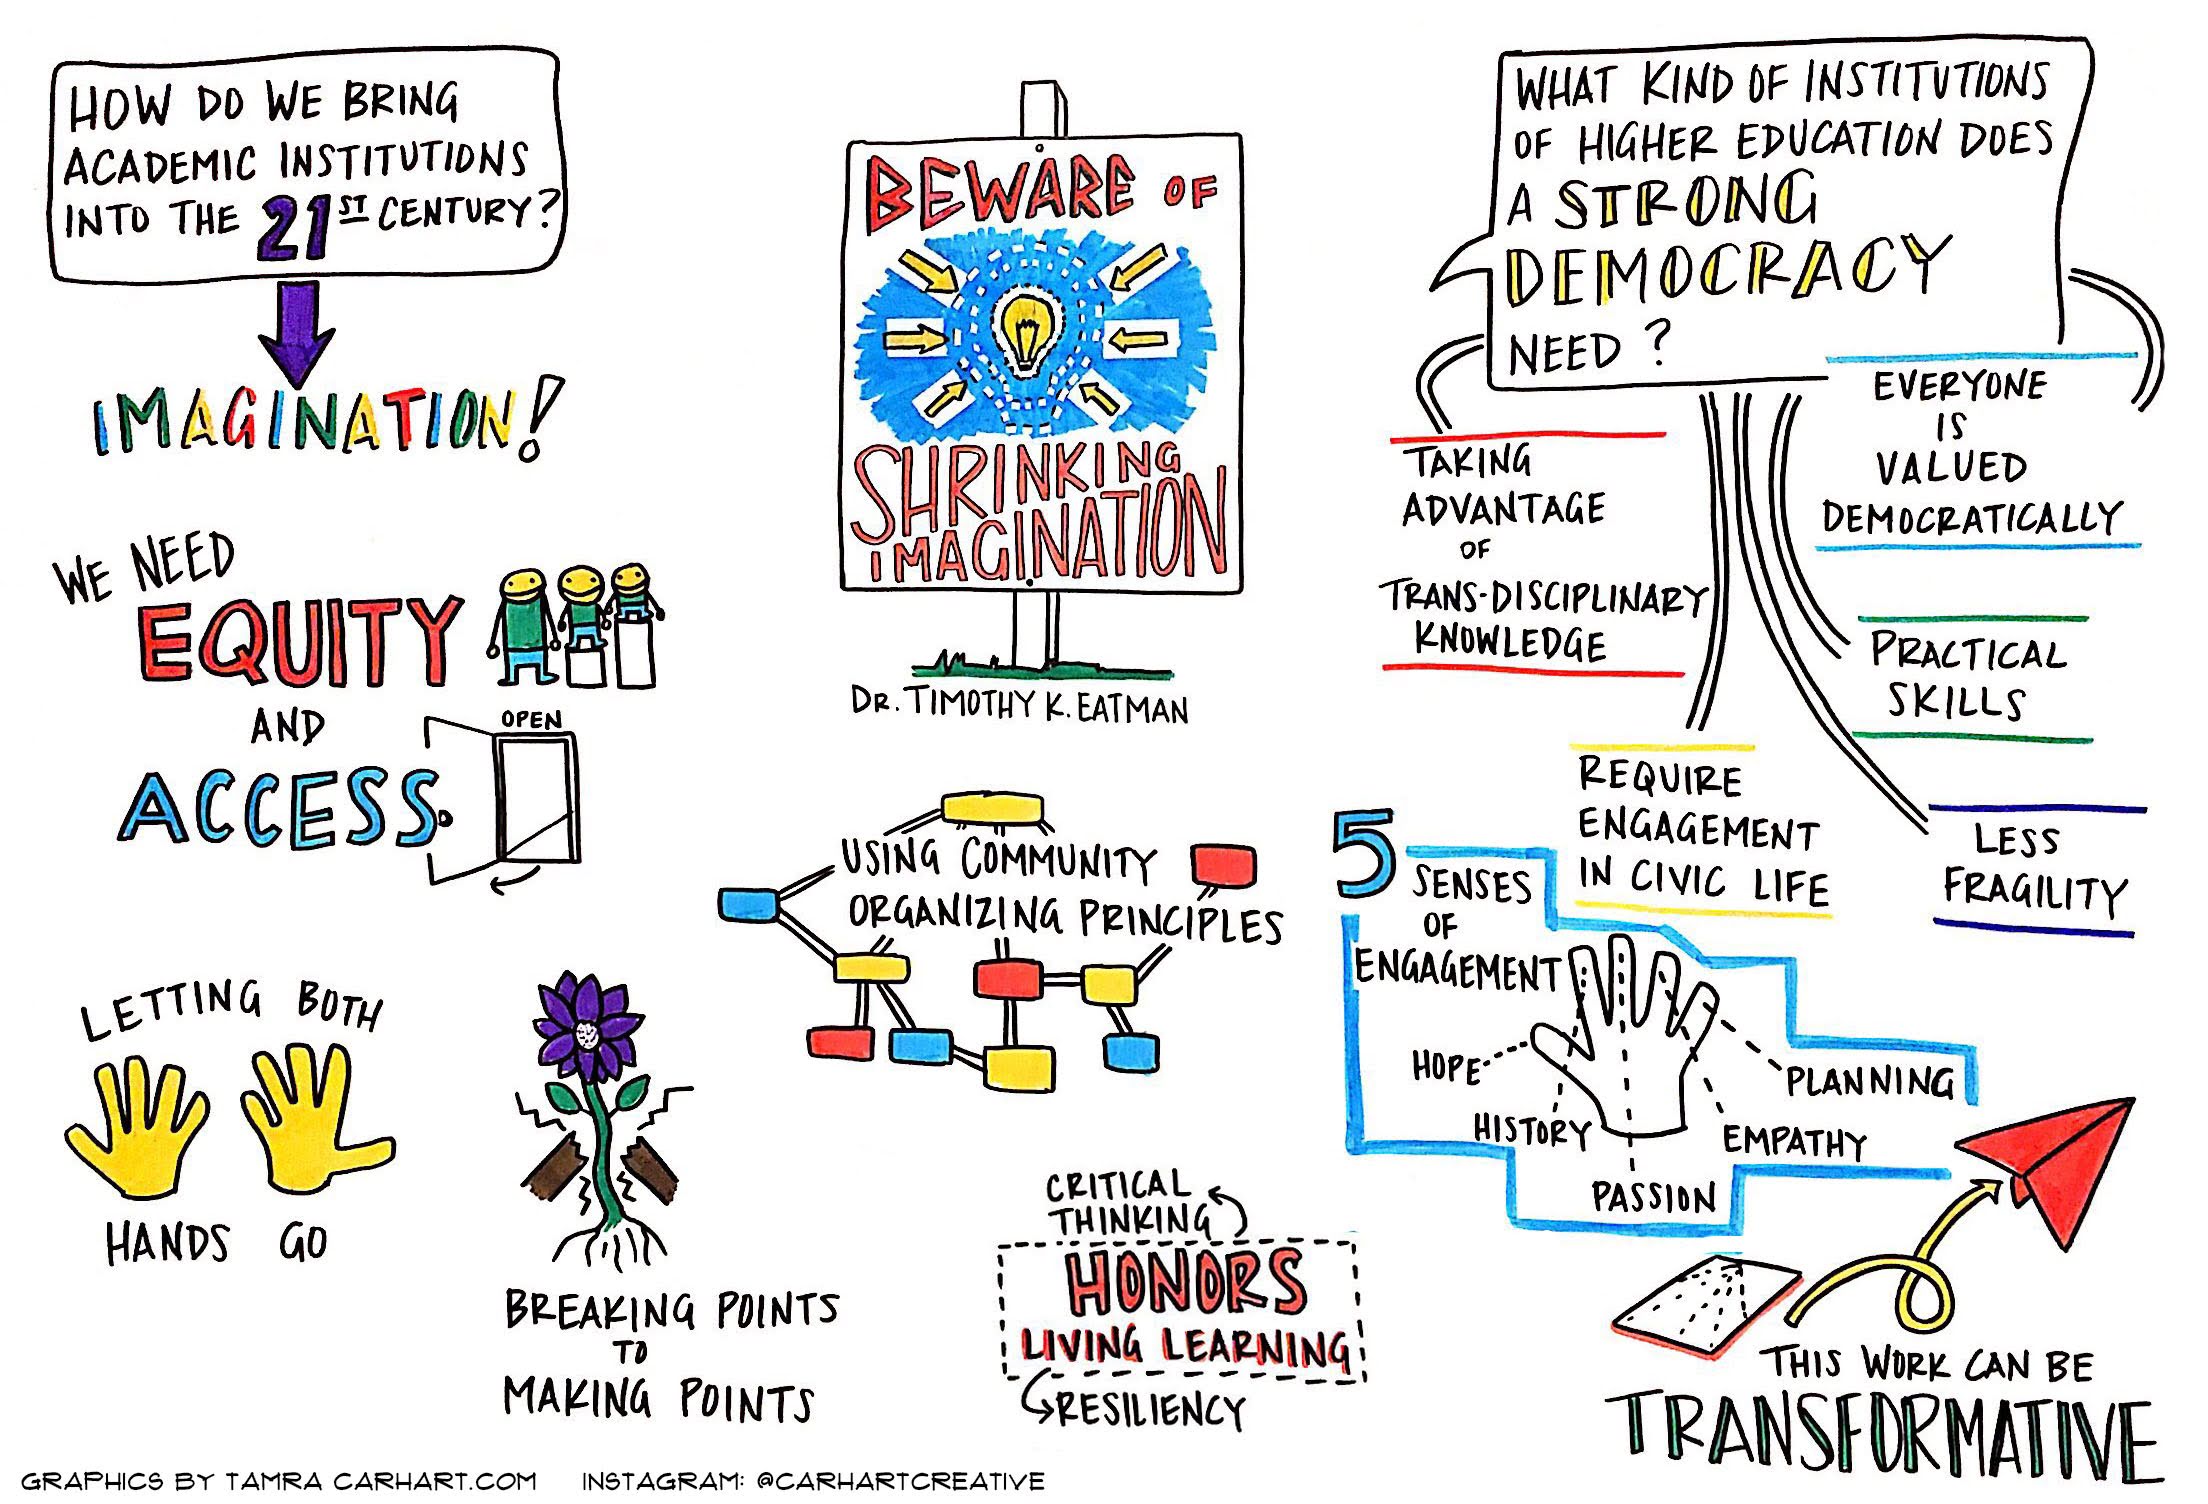 HOW DO WE BRING
ACADEMIC INSTITUTIONS
INTO THE 21ST CENTURY?
IMAGINATION!
WE NEED
EQUITY
AND
ACCESS
OPEN
LETTING BOTH
HANDS GO
BREAKING POINTS
TO
MAKING POINTS
BEWARE OF
SHRINKING
IMAGINATION
DR. TIMOTHY K. EATMAN
USING COMMUNITY
ORGANIZING PRINCIPLES
CRITICAL
THINKING
HONORS
LIVING LEARNING
RESILIENCY
WHAT KIND OF INSTITUTIONS
OF HIGHER EDUCATION DOES
A STRONG
DEMOCRACY
NEED?
TAKING
ADVANTAGE
OF
TRANS-DISCIPLINARY
KNOWLEDGE
EVERYONE
IS
VALUED
DEMOCRATICALLY
PRACTICAL
SKILLS
REQUIRE
ENGAGEMENT
IN CIVIC LIFE
LESS
FRAGILITY
5 SENSES
OF
ENGAGEMENT
HOPE
HISTORY
PASSION
EMPATHY
PLANNING
THIS WORK CAN BE
TRANSFORMATIVE
GRAPHICS BY TAMRA CARHART.COM INSTAGRAM: @CARHARTCREATIVE